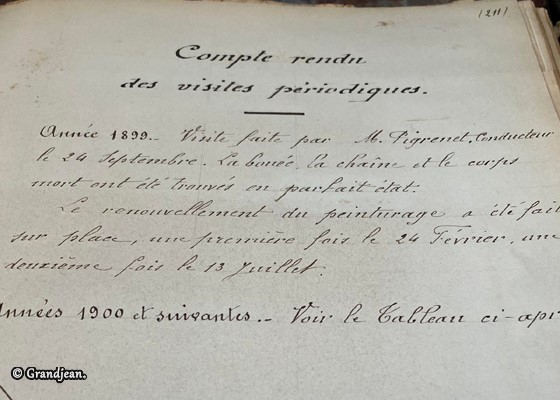 (211)
Compte rendu
des visites périodiques.
Année 1899.- Visite faite par M. Pigrenet, Conducteur
le 24 Septembre. La bouée, la chaîne et le corps
mort ont été trouvés en parfait état.
Le renouvellement du peinturage a été fait
sur place, une première fois le 24 Février, une
deuxième fois le 13 Juillet.
Années 1900 et suivantes.- Voir le Tableau ci-apr
© Grandjean.